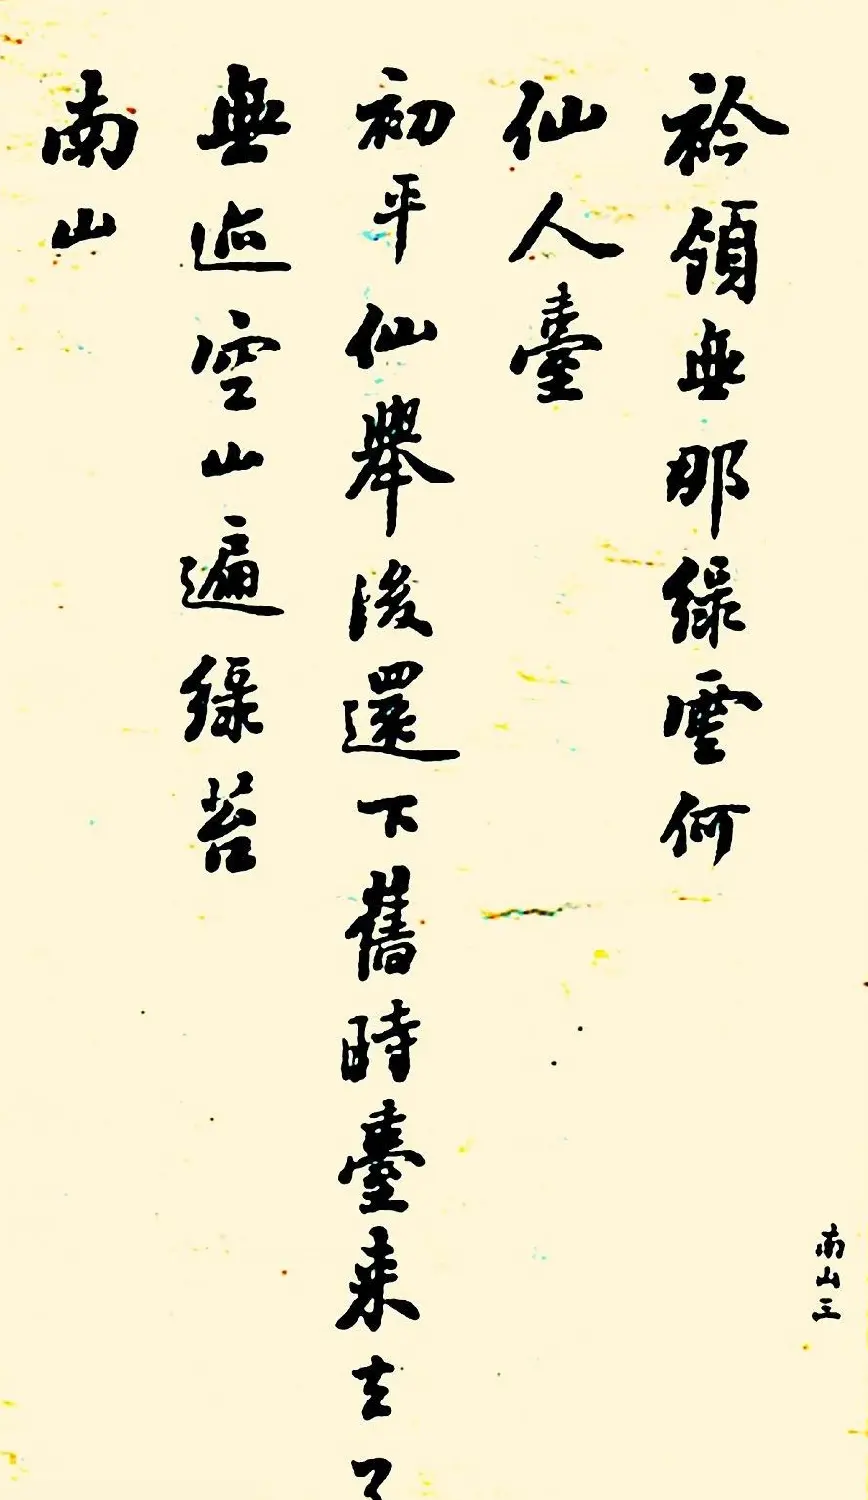 南山三
衿領無那綠雲何
仙人臺
初平仙舉後還下舊時臺来去了
無迹空山遍綠苔
南山